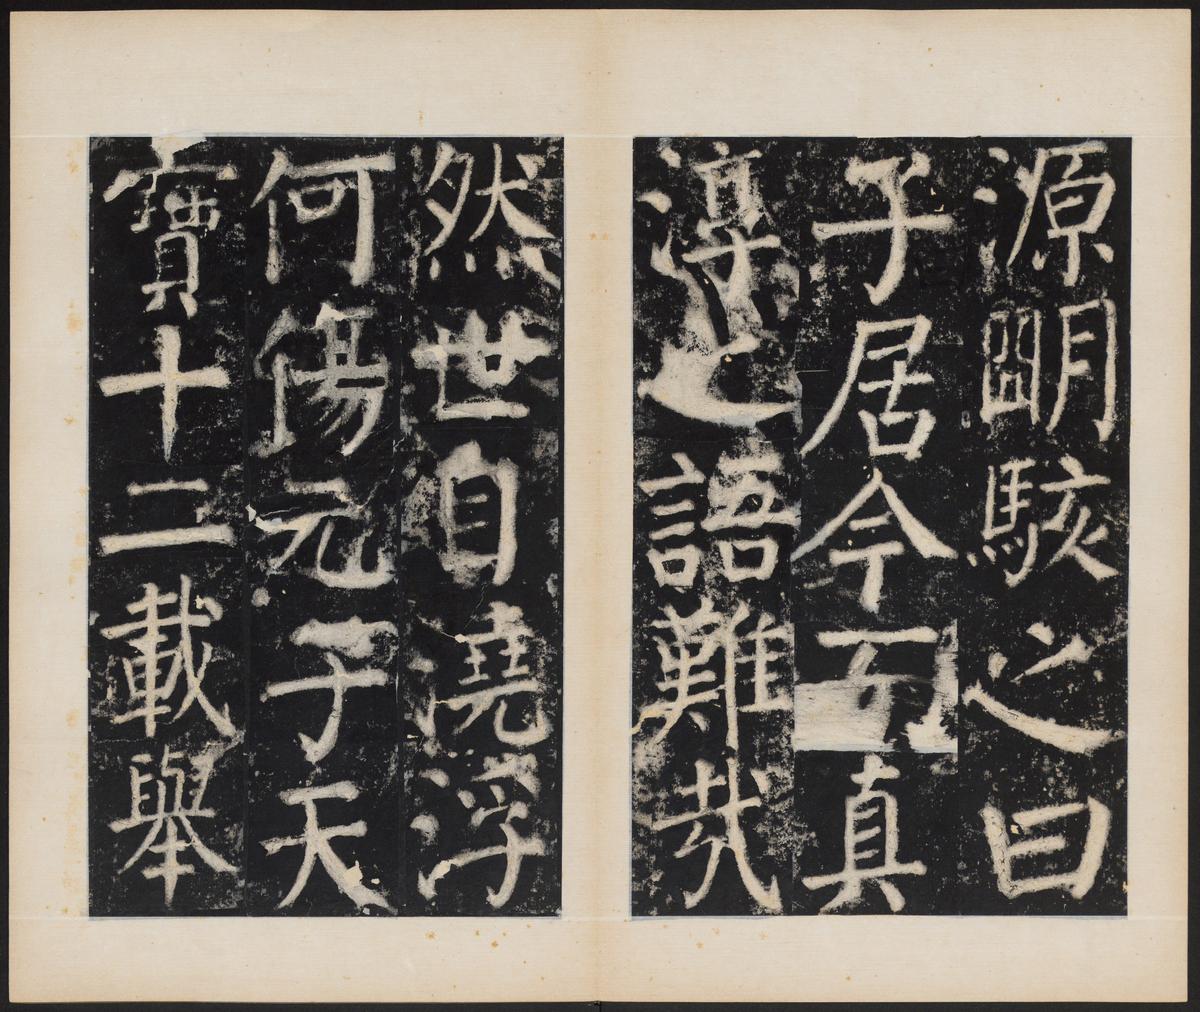 源朙駭之曰
子居今真
淳之語難哉
然世自澆浮
何傷元子天
寶十二載舉